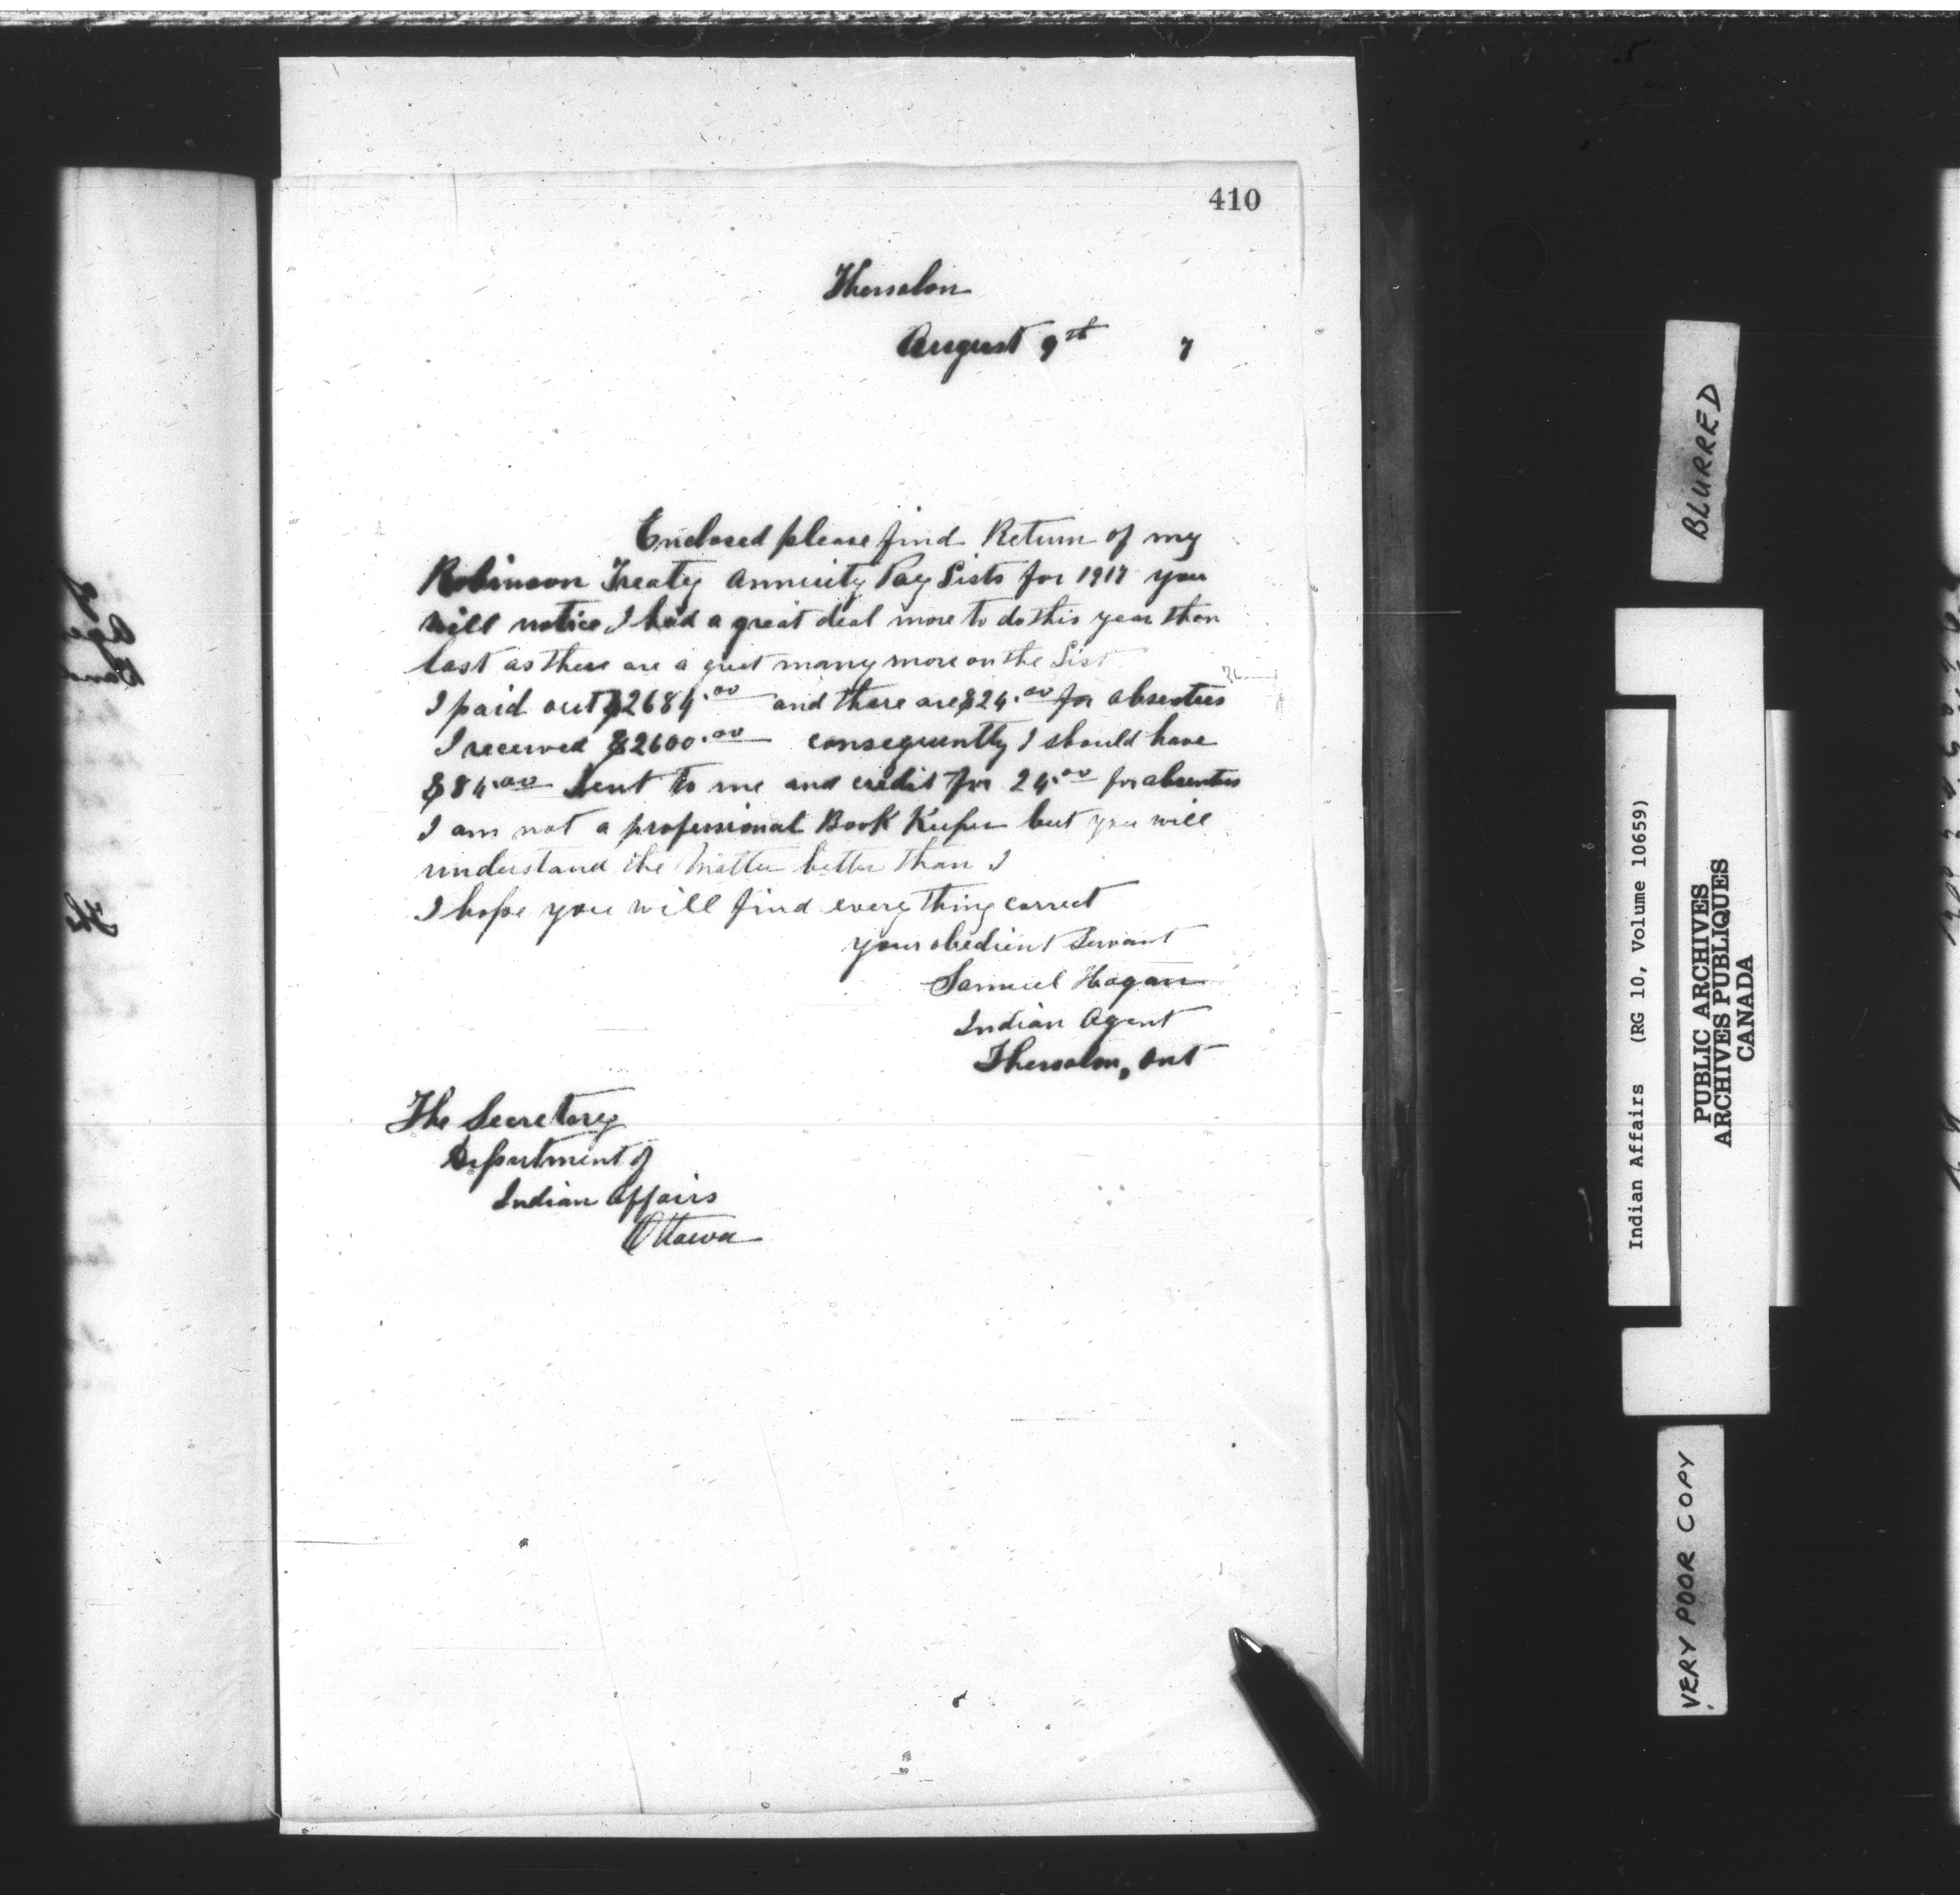 410
Thessalon
August 9th 7
Enclosed please find Return of my
Robinson Treaty Annuity Pay Lists for 1917 you
will notice I had a great deal more to do this year than
last as there are a great many more on the List
I paid out $2684.00 and there are $24.00 for absentees
I received $2600.00 consequently I should have
$84.00 sent to me and credit for 24.00 for absentees
I am not a professional Book Keeper but you will
understand the matter better than I
I hope you will find everything correct
your obedient Servant
Samuel Hagan
Indian Agent
Thessalon, Ont
The Secretary
Department of
Indian Affairs
Ottawa
BLURRED
Indian Affairs (RG 10, Volume 10659)
PUBLIC ARCHIVES
ARCHIVES PUBLIQUES
CANADA
VERY POOR COPY